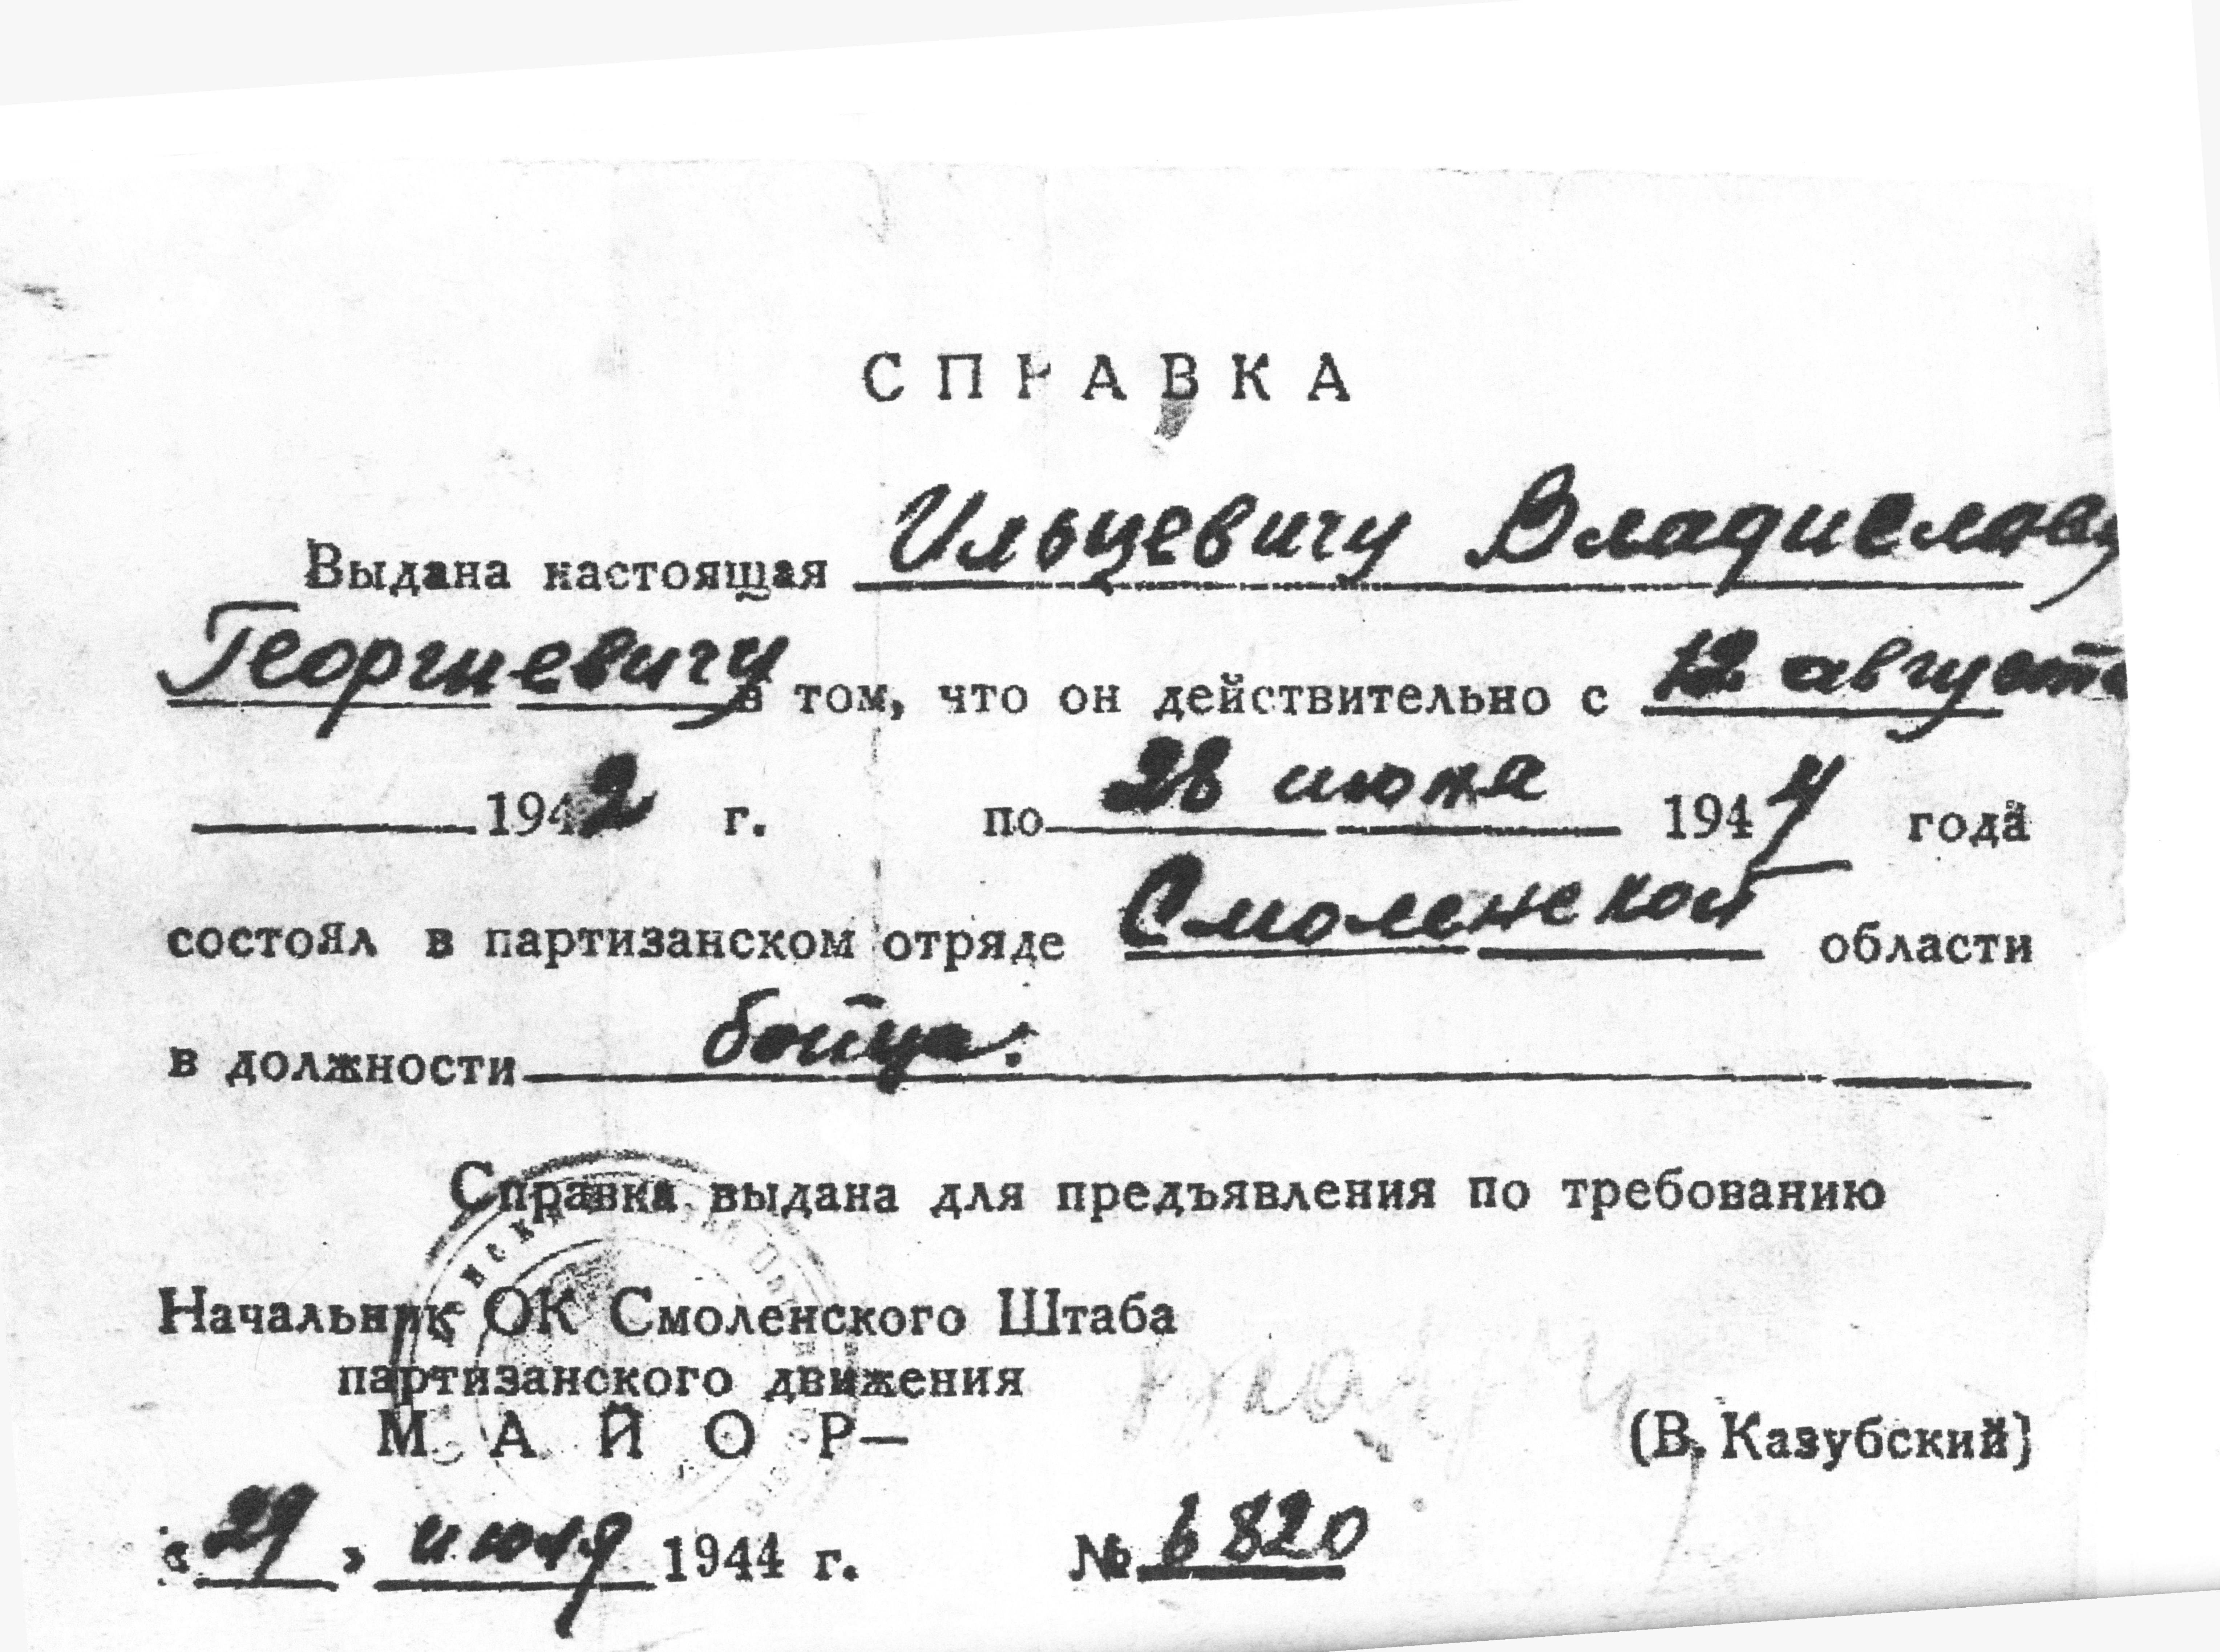 СПРАВКА
Выдана настоящая Ильцевичу Владиславу
Георгиевичу в том, что он действительно с 12 августа
1942 г. по 28 июня 1944 года
состоял в партизанском отряде Смоленской области
в должности бойца.
Справка выдана для предъявления по требованию
Начальник ОК Смоленского Штаба
партизанского движения
МАЙОР—
(В. Казубский)
«29» июля 1944 г. № 6820